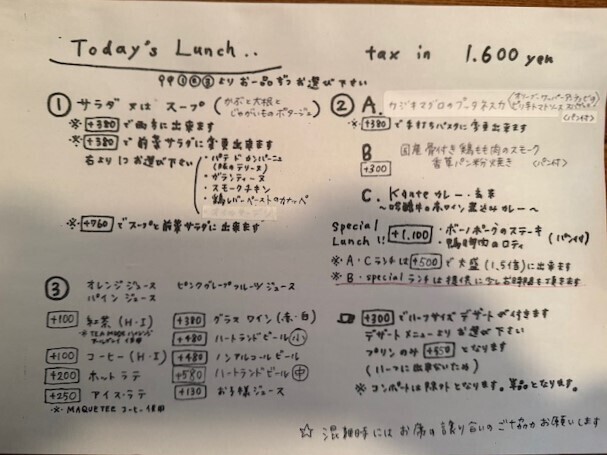 Today's Lunch..
tax in 1.600 yen
①②③よりお一品ずつお選び下さい
① サラダ 又は スープ (かぶと大根とじゃがいものポタージュ)
※ +380 で両方に出来ます
※ +380 で前菜サラダに変更出来ます
右より1つお選び下さい
・パテ ド カンパーニュ
(豚のテリーヌ)
・ガランティーヌ
・スモークチキン
・鶏レバーペーストのカナッペ
※ +760 でスープと前菜サラダに出来ます
② A. カジキマグロのプータネスカ
ピリ辛トマトソーススパゲッティ
(パン付)
※ +380 で手打ちパスタに変更出来ます
B 国産骨付き鶏もも肉のスモーク
+300 香草パン粉焼き (パン付)
C. カレー
牛の赤ワイン煮込みカレー〜
Special Lunch!! +1.100
・ボーノポークのステーキ
・鴨胸肉のロティ
(パン付)
※ A・Cランチは +500 で大盛(1.5倍)に出来ます
※ B・specialランチは提供に少しお時間を頂きます
③ オレンジジュース ピンクグレープフルーツジュース
パインジュース
+100 紅茶 (H・I)
+100 コーヒー (H・I)
+200 ホットラテ
+250 アイスラテ
※ MAQUETEE コーヒー使用
+380 グラスワイン (赤・白)
+480 ハートランドビール (小)
+480 ノンアルコールビール
+580 ハートランドビール (中)
+130 お子様ジュース
+300 でハーフサイズデザートが付きます
デザートメニューよりお選び下さい
プリンのみ +350 となります
(ハーフに出来ないため)
※ コンポートは除外となります。単品となります。
☆ 混雑時にはお席の譲り合いのご協力お願いします